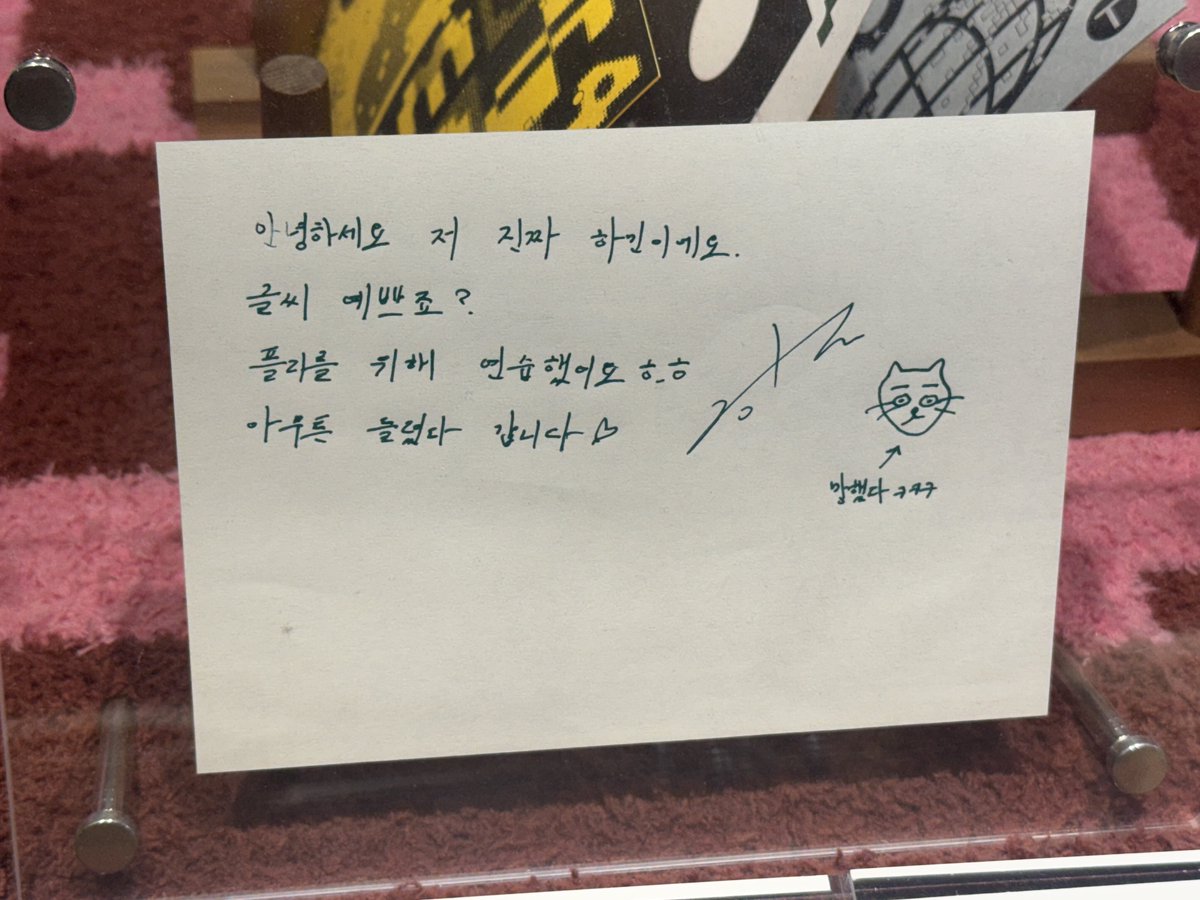 안녕하세요 저 진짜 하민이에요.
글씨 예쁘죠?
플리를 위해 연습했어요 ㅎ_ㅎ
아무튼 들렀다 갑니다♡
망했다 ㅋㅋㅋ
T